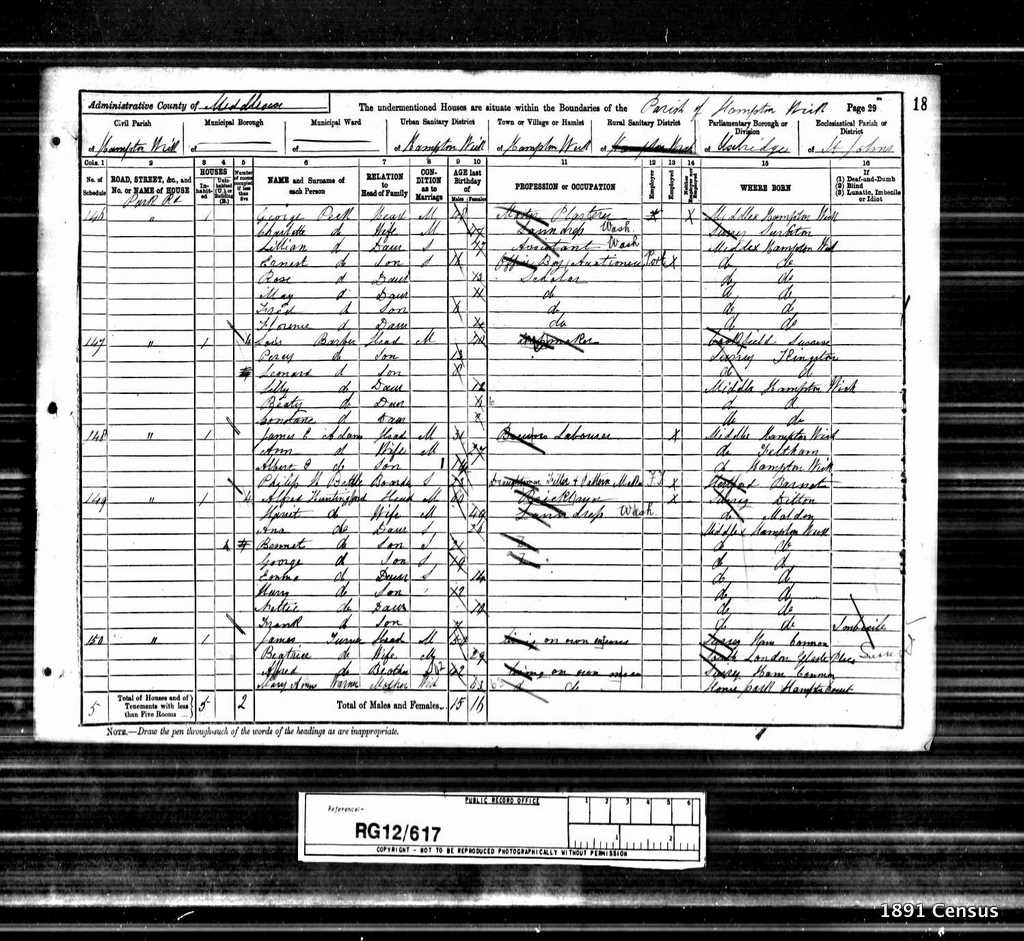 Administrative County of Middlesex
The undermentioned Houses are situate within the Boundaries of the Parish of Hampton Wick
Page 29
18
Civil Parish
Municipal Borough
Municipal Ward
Urban Sanitary District
Town or Village or Hamlet
Rural Sanitary District
Parliamentary Borough or Division
Ecclesiastical Parish or District
of Hampton Wick of of of Hampton Wick of Hampton Wick of Hampton Wick of Uxbridge of St Johns
Cols. 1 2 3 4 5 6 7 8 9 10 11 12 13 14 15 16
No. of Schedule
ROAD, STREET, &c., and No. or NAME of HOUSE
HOUSES
Inhabited
Uninhabited (U.) or Building (B.)
Number of rooms occupied if less than five
NAME and Surname of each Person
RELATION to Head of Family
CONDITION as to Marriage
AGE last Birthday of
Males Females
PROFESSION or OCCUPATION
Employer
Employed
Neither Employer nor Employed
WHERE BORN
If
(1) Deaf-and-Dumb
(2) Blind
(3) Lunatic, Imbecile or Idiot
Park Rd
146 " 1 George Peck Head M 48 Master Plasterer X Middlex Hampton Wick
Charlotte do Wife M 47 Laundress Wash Surrey Surbiton
Lillian do Daur S Assistant Wash Middex Hampton Wick
Ernest do Son S 16 Office Boy Auctioneer X do do
Rose do Daur 13 Scholar do do
May do Daur 11 do do do
Fred do Son do do do
Florence do Daur do do do
147 " 1 4 Barber Head M Cuckfield Sussex
Percy do Son 13 Surrey Kingston
Leonard do Son do do
Lilly do Daur 12 Middlx Hampton Wick
do Daur do do
Constance do Daur do do
148 " 1 James E Adams Head M 31 Labourer X Middlex Hampton Wick
Ann do Wife M 27 do Feltham
Albert E do Son do Hampton Wick
Philip Boarder S X Barnet
149 " 1 4 Alfred Huntingford Head M Bricklayer X Surrey Ditton
Harriet do Wife M 49 Laundress Wash do Maldon
do Daur S Middlex Hampton Wick
Bennet do Son S 21 do do
George do Son S 19 do do
Emma do Daur S 14 do do
Harry do Son 12 do do
Nettie do Daur 10 do do
Frank do Son do do Imbecile
150 " 1 James Turner Head M living on own means Surrey Ham Common
Beatrice do Wife M 29 London
Alfred do Brother 42 living on own means Surrey Ham Common
Mary Ann Warner Mother Wid do Home Park Hampton Court
5 Total of Houses and of Tenements with less than Five Rooms 5 2 Total of Males and Females.. 15 16
NOTE.—Draw the pen through such of the words of the headings as are inappropriate.
PUBLIC RECORD OFFICE
Reference:-
RG12/617
1 2 3 4 5 6
1 2
COPYRIGHT - NOT TO BE REPRODUCED PHOTOGRAPHICALLY WITHOUT PERMISSION
1891 Census